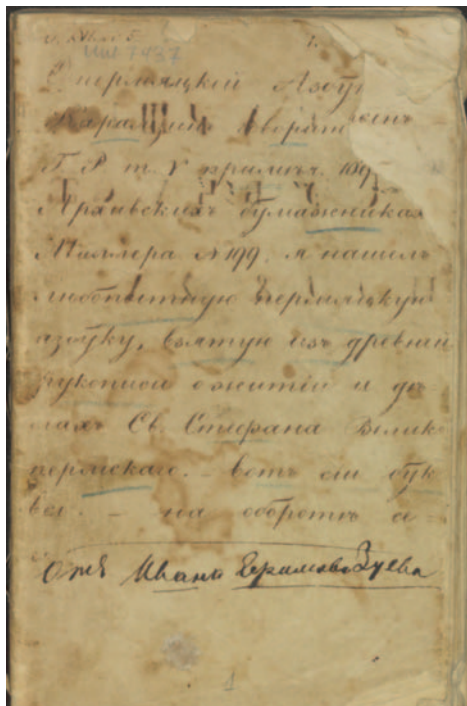 ИШ 7437
Пермяцкой Азбу
Карамзинъ говорит
Г. Р. т. V примѣч.
Архивскихъ бумажникахъ
Миллера №199. я нашелъ
любопытную пермяцкую
азбуку, взятую изъ древней
рукописи о житіи и дѣ-
лахъ Св. Стефана Велик
пермскаго. — вотъ сіи бук
вы. — на оборотѣ
Отъ Ивана Зуева
1